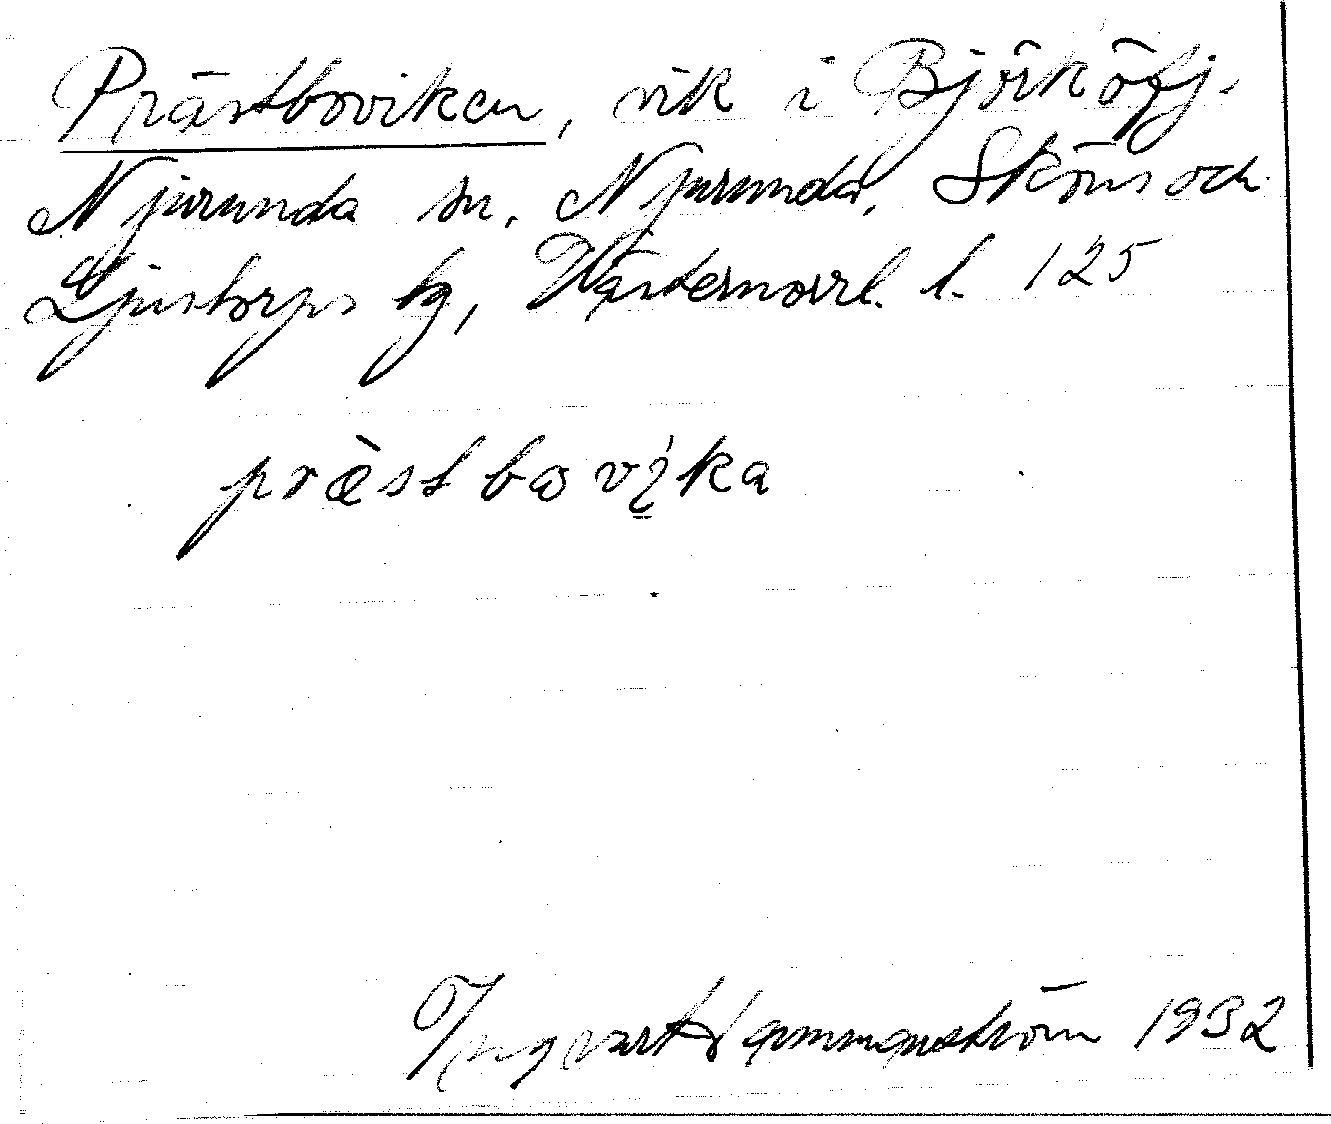 Prästboviken, vik i Björköfj.
Njurunda sn. Njurunda, Sköns och
Ljustorps tg, Västernorrl. l. 125
præ̀stbωvı̨́ka
Ingvart Hammarström 1932